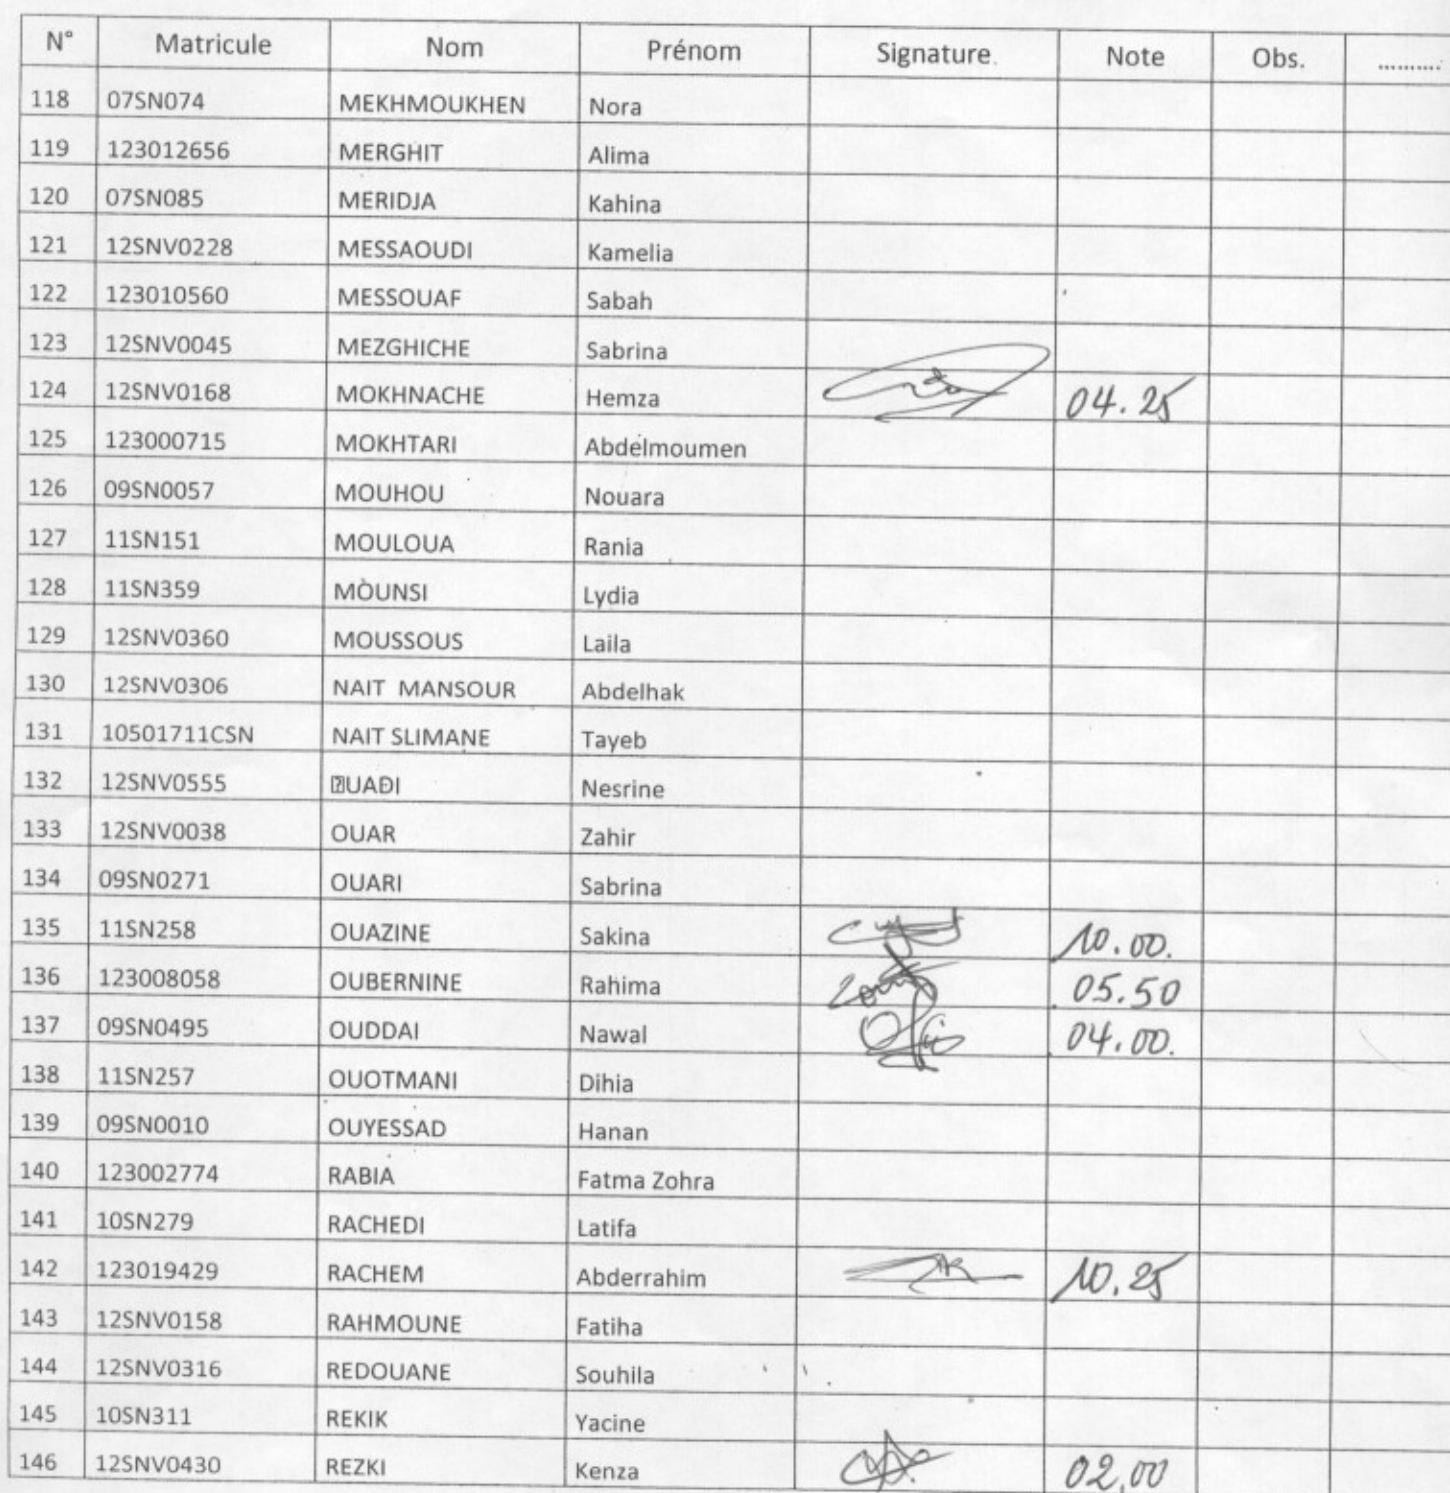 N° Matricule Nom Prénom Signature. Note Obs. ..........
118 07SN074 MEKHMOUKHEN Nora
119 123012656 MERGHIT Alima
120 07SN085 MERIDJA Kahina
121 12SNV0228 MESSAOUDI Kamelia
122 123010560 MESSOUAF Sabah
123 12SNV0045 MEZGHICHE Sabrina
124 12SNV0168 MOKHNACHE Hemza 04.25
125 123000715 MOKHTARI Abdelmoumen
126 09SN0057 MOUHOU Nouara
127 11SN151 MOULOUA Rania
128 11SN359 MOUNSI Lydia
129 12SNV0360 MOUSSOUS Laila
130 12SNV0306 NAIT MANSOUR Abdelhak
131 10501711CSN NAIT SLIMANE Tayeb
132 12SNV0555 Nesrine
133 12SNV0038 OUAR Zahir
134 09SN0271 OUARI Sabrina
135 11SN258 OUAZINE Sakina 10.00.
136 123008058 OUBERNINE Rahima 05.50
137 09SN0495 OUDDAI Nawal 04.00.
138 11SN257 OUOTMANI Dihia
139 09SN0010 OUYESSAD Hanan
140 123002774 RABIA Fatma Zohra
141 10SN279 RACHEDI Latifa
142 123019429 RACHEM Abderrahim 10.25
143 12SNV0158 RAHMOUNE Fatiha
144 12SNV0316 REDOUANE Souhila
145 10SN311 REKIK Yacine
146 12SNV0430 REZKI Kenza 02,00